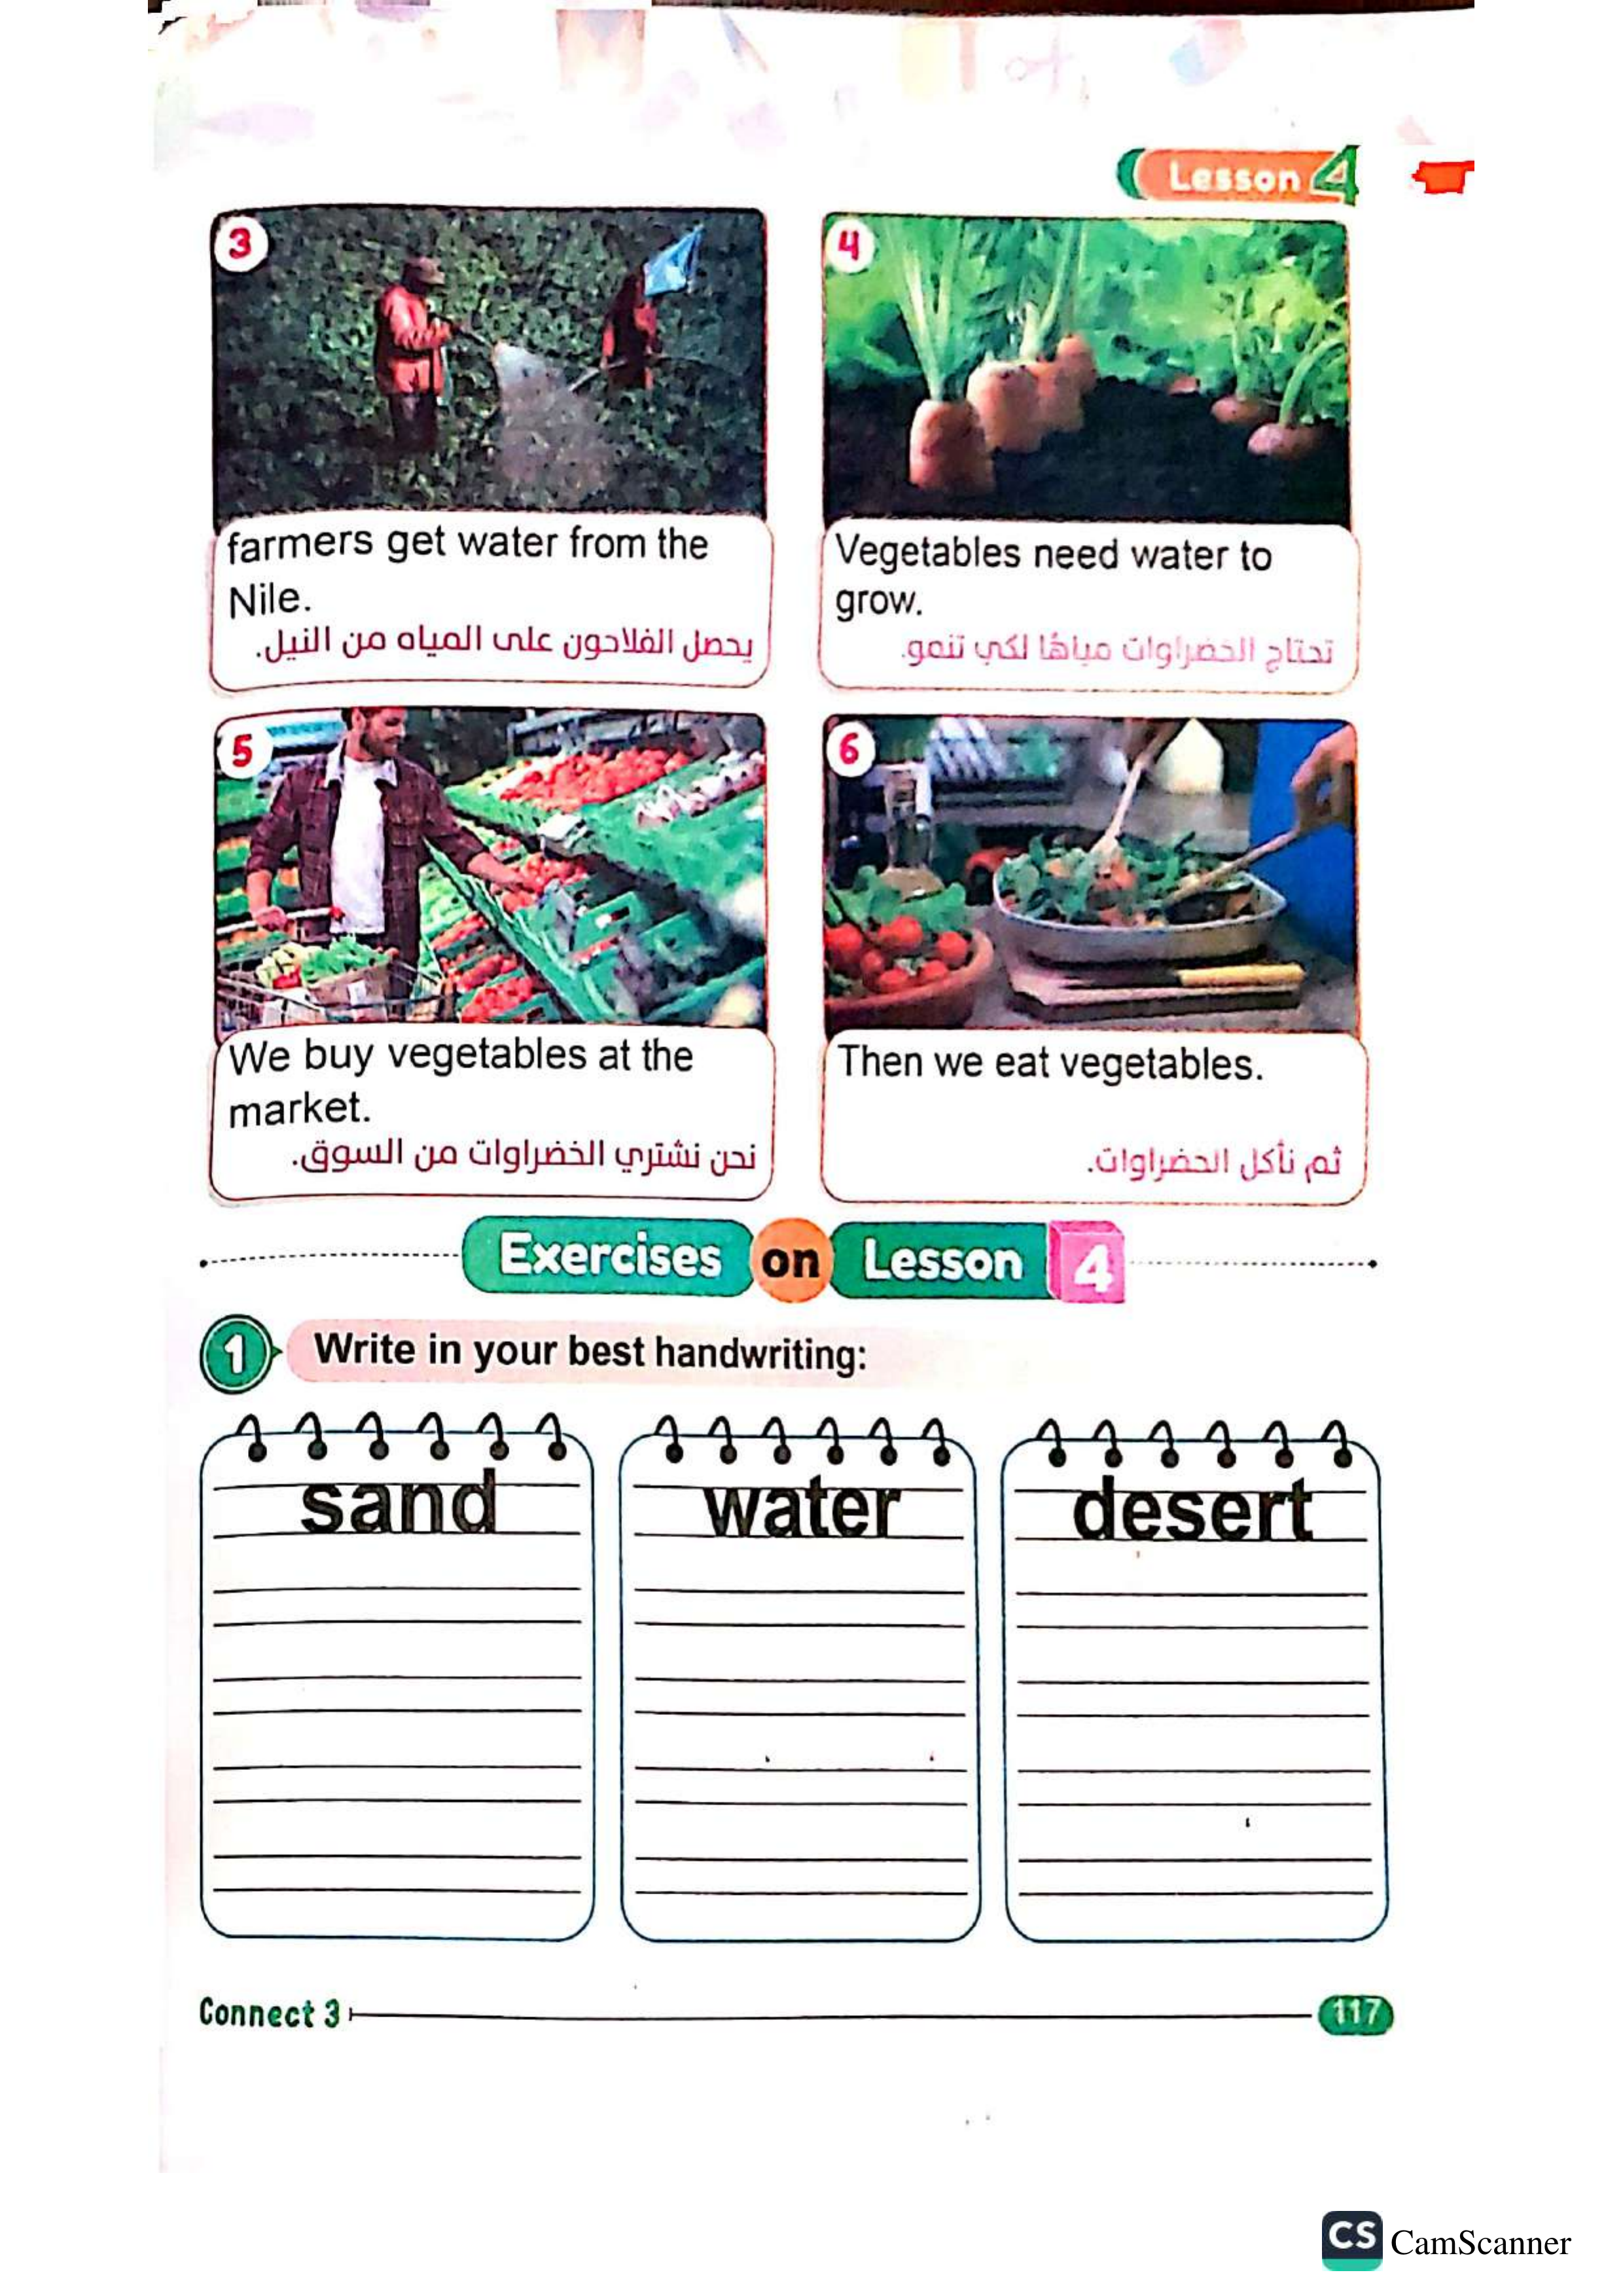 Lesson 4
3
farmers get water from the
Nile.
يحصل الفلاحون على المياه من النيل.
4
Vegetables need water to
grow.
تحتاج الخضراوات مياهًا لكي تنمو.
5
We buy vegetables at the
market.
نحن نشتري الخضراوات من السوق.
6
Then we eat vegetables.
ثم نأكل الخضراوات.
Exercises on Lesson 4
1 Write in your best handwriting:
sand
water
desert
Connect 3
117
CS CamScanner